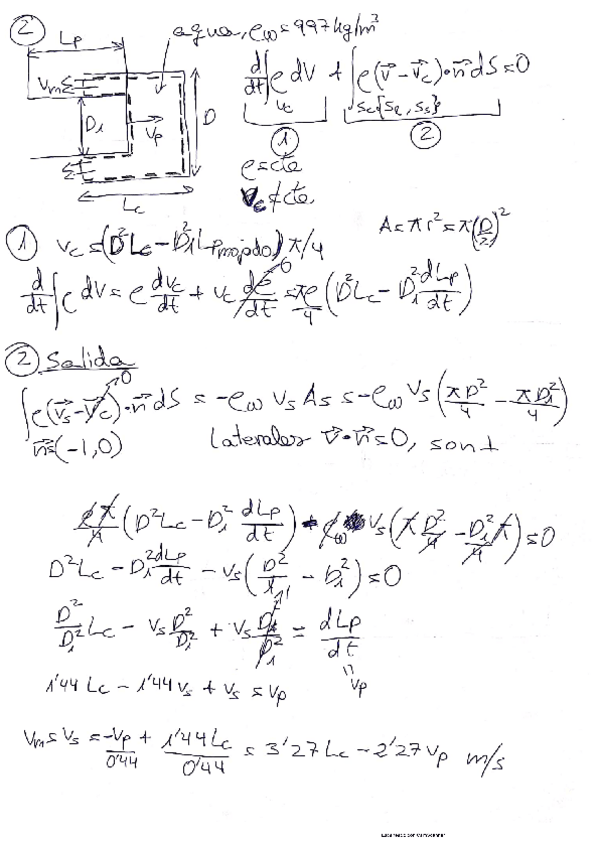 ②
agua, ρω=997kg/m³
Lp
Vm
D₁
Vp
D
Lc
d/dt ∫vc ρ dV + ∫sc{Se, Ss} ρ(v⃗ - v⃗c)·n⃗ dS = 0
① ②
ρ=cte
Vc≠cte
① Vc = (D²Lc - D₁²Lpmojado) π/4
A=πr²=π(D/2)²
d/dt ∫ρ dV = ρ dVc/dt + Vc dρ/dt = πρ/4 (D²Lc - D₁² dLp/dt)
0
② Salida
∫ρ(v⃗s - v⃗c)·n⃗ dS = -ρω Vs As = -ρω Vs (πD²/4 - πD₁²/4)
0
n⃗=(-1,0) laterales v⃗·n⃗=0, son ⊥
ρπ/4 (D²Lc - D₁² dLp/dt) - ρω Vs (π D²/4 - D₁²π/4) = 0
D²Lc - D₁² dLp/dt - Vs (D²/1 - D₁²) = 0
D²/D₁² Lc - Vs D²/D₁² + Vs D₁²/D₁² = dLp/dt
1
Vp
1'44 Lc - 1'44 Vs + Vs = Vp
Vm = Vs = -Vp/0'44 + 1'44 Lc/0'44 = 3'27 Lc - 2'27 Vp m/s